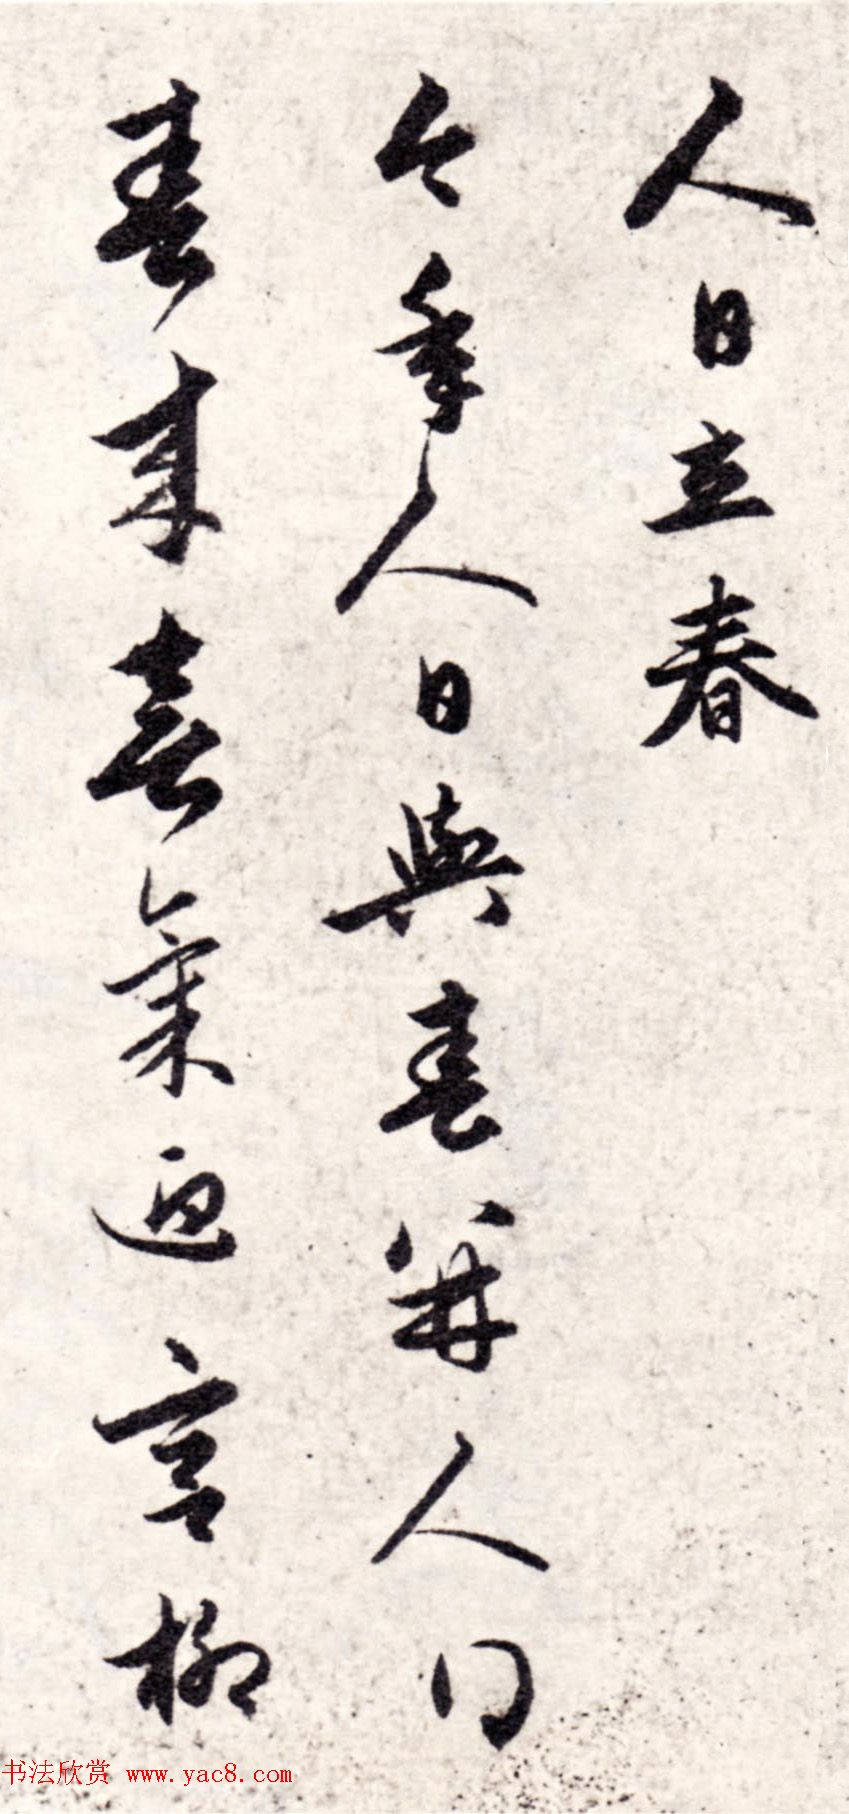 人日立春
今年人日與春并人
春來喜氣迎宮柳
书法欣赏 www.yac8.com